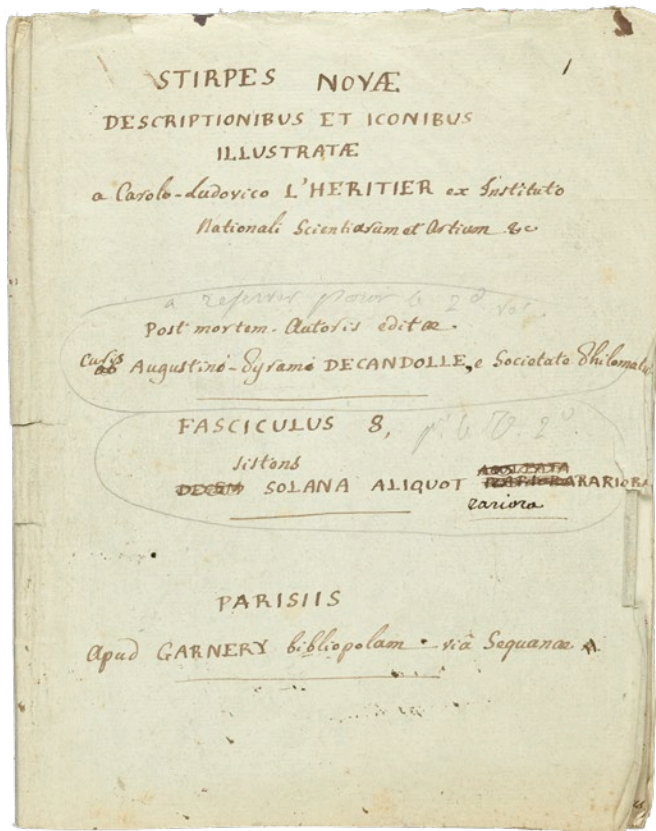 1
STIRPES NOVÆ
DESCRIPTIONIBUS ET ICONIBUS
ILLUSTRATÆ
a Carolo-Ludovico L'HERITIER ex Instituto
Nationali Scientiarum et Artium &c
a reserver pour le 2d vol
Post mortem Autoris editæ
curis
Augustini-Pyrami DECANDOLLE, e Societate Philomatic
FASCICULUS 8,
sistens
DECEM SOLANA ALIQUOT RARIORA
rariora
PARISIIS
Apud GARNERY bibliopolam viâ Sequanæ